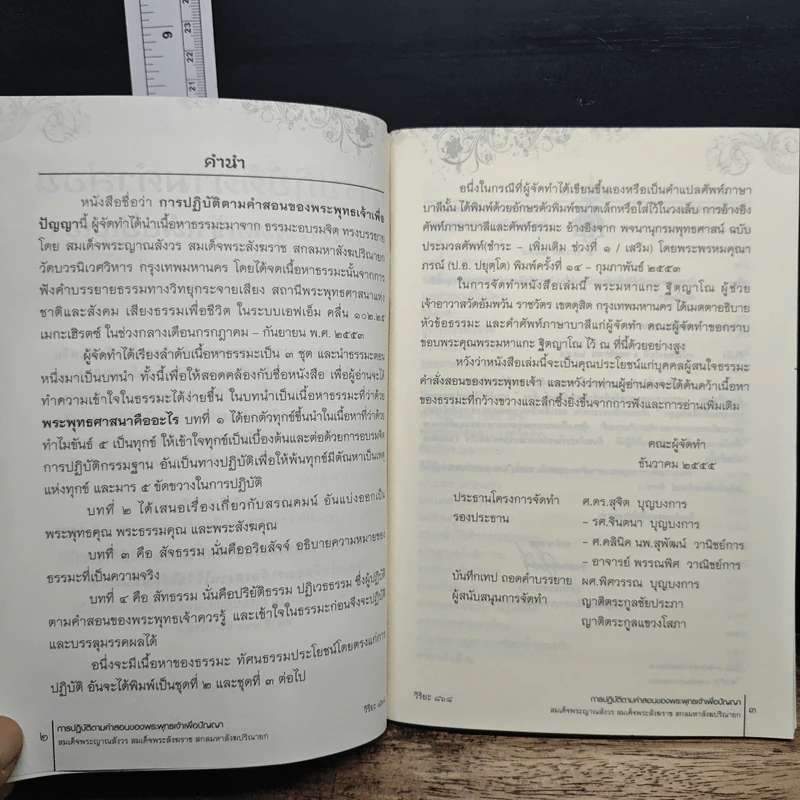 คำนำ
หนังสือชื่อว่า การปฏิบัติตามคำสอนของพระพุทธเจ้าเพื่อ
ปัญญานี้ ผู้จัดทำได้นำเนื้อหาธรรมะมาจาก ธรรมะอบรมจิต ทรงบรรยาย
โดย สมเด็จพระญาณสังวร สมเด็จพระสังฆราช สกลมหาสังฆปริณายก
วัดบวรนิเวศวิหาร กรุงเทพมหานคร โดยได้จดเนื้อหาธรรมะนั้นจากการ
ฟังคำบรรยายธรรมทางวิทยุกระจายเสียง สถานีพระพุทธศาสนาแห่ง
ชาติและสังคม เสียงธรรมเพื่อชีวิต ในระบบเอฟเอ็ม คลื่น ๑๐๒.๒๕
เมกะเฮิรตซ์ ในช่วงกลางเดือนกรกฎาคม – กันยายน พ.ศ. ๒๕๕๓
ผู้จัดทำได้เรียงลำดับเนื้อหาธรรมะเป็น ๓ ชุด และนำธรรมะตอน
หนึ่งมาเป็นบทนำ ทั้งนี้เพื่อให้สอดคล้องกับชื่อหนังสือ เพื่อผู้อ่านจะได้
ทำความเข้าใจในธรรมะได้ง่ายขึ้น ในบทนำเป็นเนื้อหาธรรมะที่ว่าด้วย
พระพุทธศาสนาคืออะไร บทที่ ๑ ได้ยกตัวทุกข์ขึ้นนำในเนื้อหาที่ว่าด้วย
ทำไมขันธ์ ๕ เป็นทุกข์ ให้เข้าใจทุกข์เป็นเบื้องต้นและต่อด้วยการอบรมจิต
การปฏิบัติกรรมฐาน อันเป็นทางปฏิบัติเพื่อให้พ้นทุกข์มีตัณหาเป็นเหตุ
แห่งทุกข์ และมาร ๕ ขัดขวางในการปฏิบัติ
บทที่ ๒ ได้เสนอเรื่องเกี่ยวกับสรณคมน์ อันแบ่งออกเป็น
พระพุทธคุณ พระธรรมคุณ และพระสังฆคุณ
บทที่ ๓ คือ สัจธรรม นั่นคืออริยสัจจ์ อธิบายความหมายของ
ธรรมะที่เป็นความจริง
บทที่ ๔ คือ สัทธรรม นั่นคือปริยัติธรรม ปฏิเวธธรรม ซึ่งผู้ปฏิบัติ
ตามคำสอนของพระพุทธเจ้าควรรู้ และเข้าใจในธรรมะก่อนจึงจะปฏิบัติ
และบรรลุมรรคผลได้
อนึ่งจะมีเนื้อหาของธรรมะ ทัศนธรรมประโยชน์โดยตรงแก่การ
ปฏิบัติ อันจะได้พิมพ์เป็นชุดที่ ๒ และชุดที่ ๓ ต่อไป
๒ การปฏิบัติตามคำสอนของพระพุทธเจ้าเพื่อปัญญา
สมเด็จพระญาณสังวร สมเด็จพระสังฆราช สกลมหาสังฆปริณายก
วิริยะ ๘๖๘
อนึ่งในกรณีที่ผู้จัดทำได้เขียนขึ้นเองหรือเป็นคำแปลศัพท์ภาษา
บาลีนั้น ได้พิมพ์ด้วยอักษรตัวพิมพ์ขนาดเล็กหรือใส่ไว้ในวงเล็บ การอ้างอิง
ศัพท์ภาษาบาลีและศัพท์ธรรมะ อ้างอิงจาก พจนานุกรมพุทธศาสน์ ฉบับ
ประมวลศัพท์(ชำระ – เพิ่มเติม ช่วงที่ ๑ / เสริม) โดยพระพรหมคุณา
ภรณ์ (ป.อ. ปยุตฺโต) พิมพ์ครั้งที่ ๑๔ – กุมภาพันธ์ ๒๕๕๓
ในการจัดทำหนังสือเล่มนี้ พระมหาแกะ ฐิตญาโณ ผู้ช่วย
เจ้าอาวาสวัดอัมพวัน ราชวัตร เขตดุสิต กรุงเทพมหานคร ได้เมตตาอธิบาย
หัวข้อธรรมะ และคำศัพท์ภาษาบาลีแก่ผู้จัดทำ คณะผู้จัดทำขอกราบ
ขอบพระคุณพระมหาแกะ ฐิตญาโณ ไว้ ณ ที่นี้ด้วยอย่างสูง
หวังว่าหนังสือเล่มนี้จะเป็นคุณประโยชน์แก่บุคคลผู้สนใจธรรมะ
คำสั่งสอนของพระพุทธเจ้า และหวังว่าท่านผู้อ่านคงจะได้ค้นคว้าเนื้อหา
ของธรรมะที่กว้างขวางและลึกซึ้งยิ่งขึ้นจากการฟังและการอ่านเพิ่มเติม
คณะผู้จัดทำ
ธันวาคม ๒๕๕๕
ประธานโครงการจัดทำ ศ.ดร.สุจิต บุญบงการ
รองประธาน – รศ.จินตนา บุญบงการ
– ศ.คลินิค นพ.สุพัฒน์ วานิชย์การ
– อาจารย์ พรรณพิศ วาณิชย์การ
บันทึกเทป ถอดคำบรรยาย ผศ.พิศวรรณ บุญบงการ
ผู้สนับสนุนการจัดทำ ญาติตระกูลชัยประภา
ญาติตระกูลแขวงโสภา
วิริยะ ๘๖๘
การปฏิบัติตามคำสอนของพระพุทธเจ้าเพื่อปัญญา ๓
สมเด็จพระญาณสังวร สมเด็จพระสังฆราช สกลมหาสังฆปริณายก
9
24
23
22
21